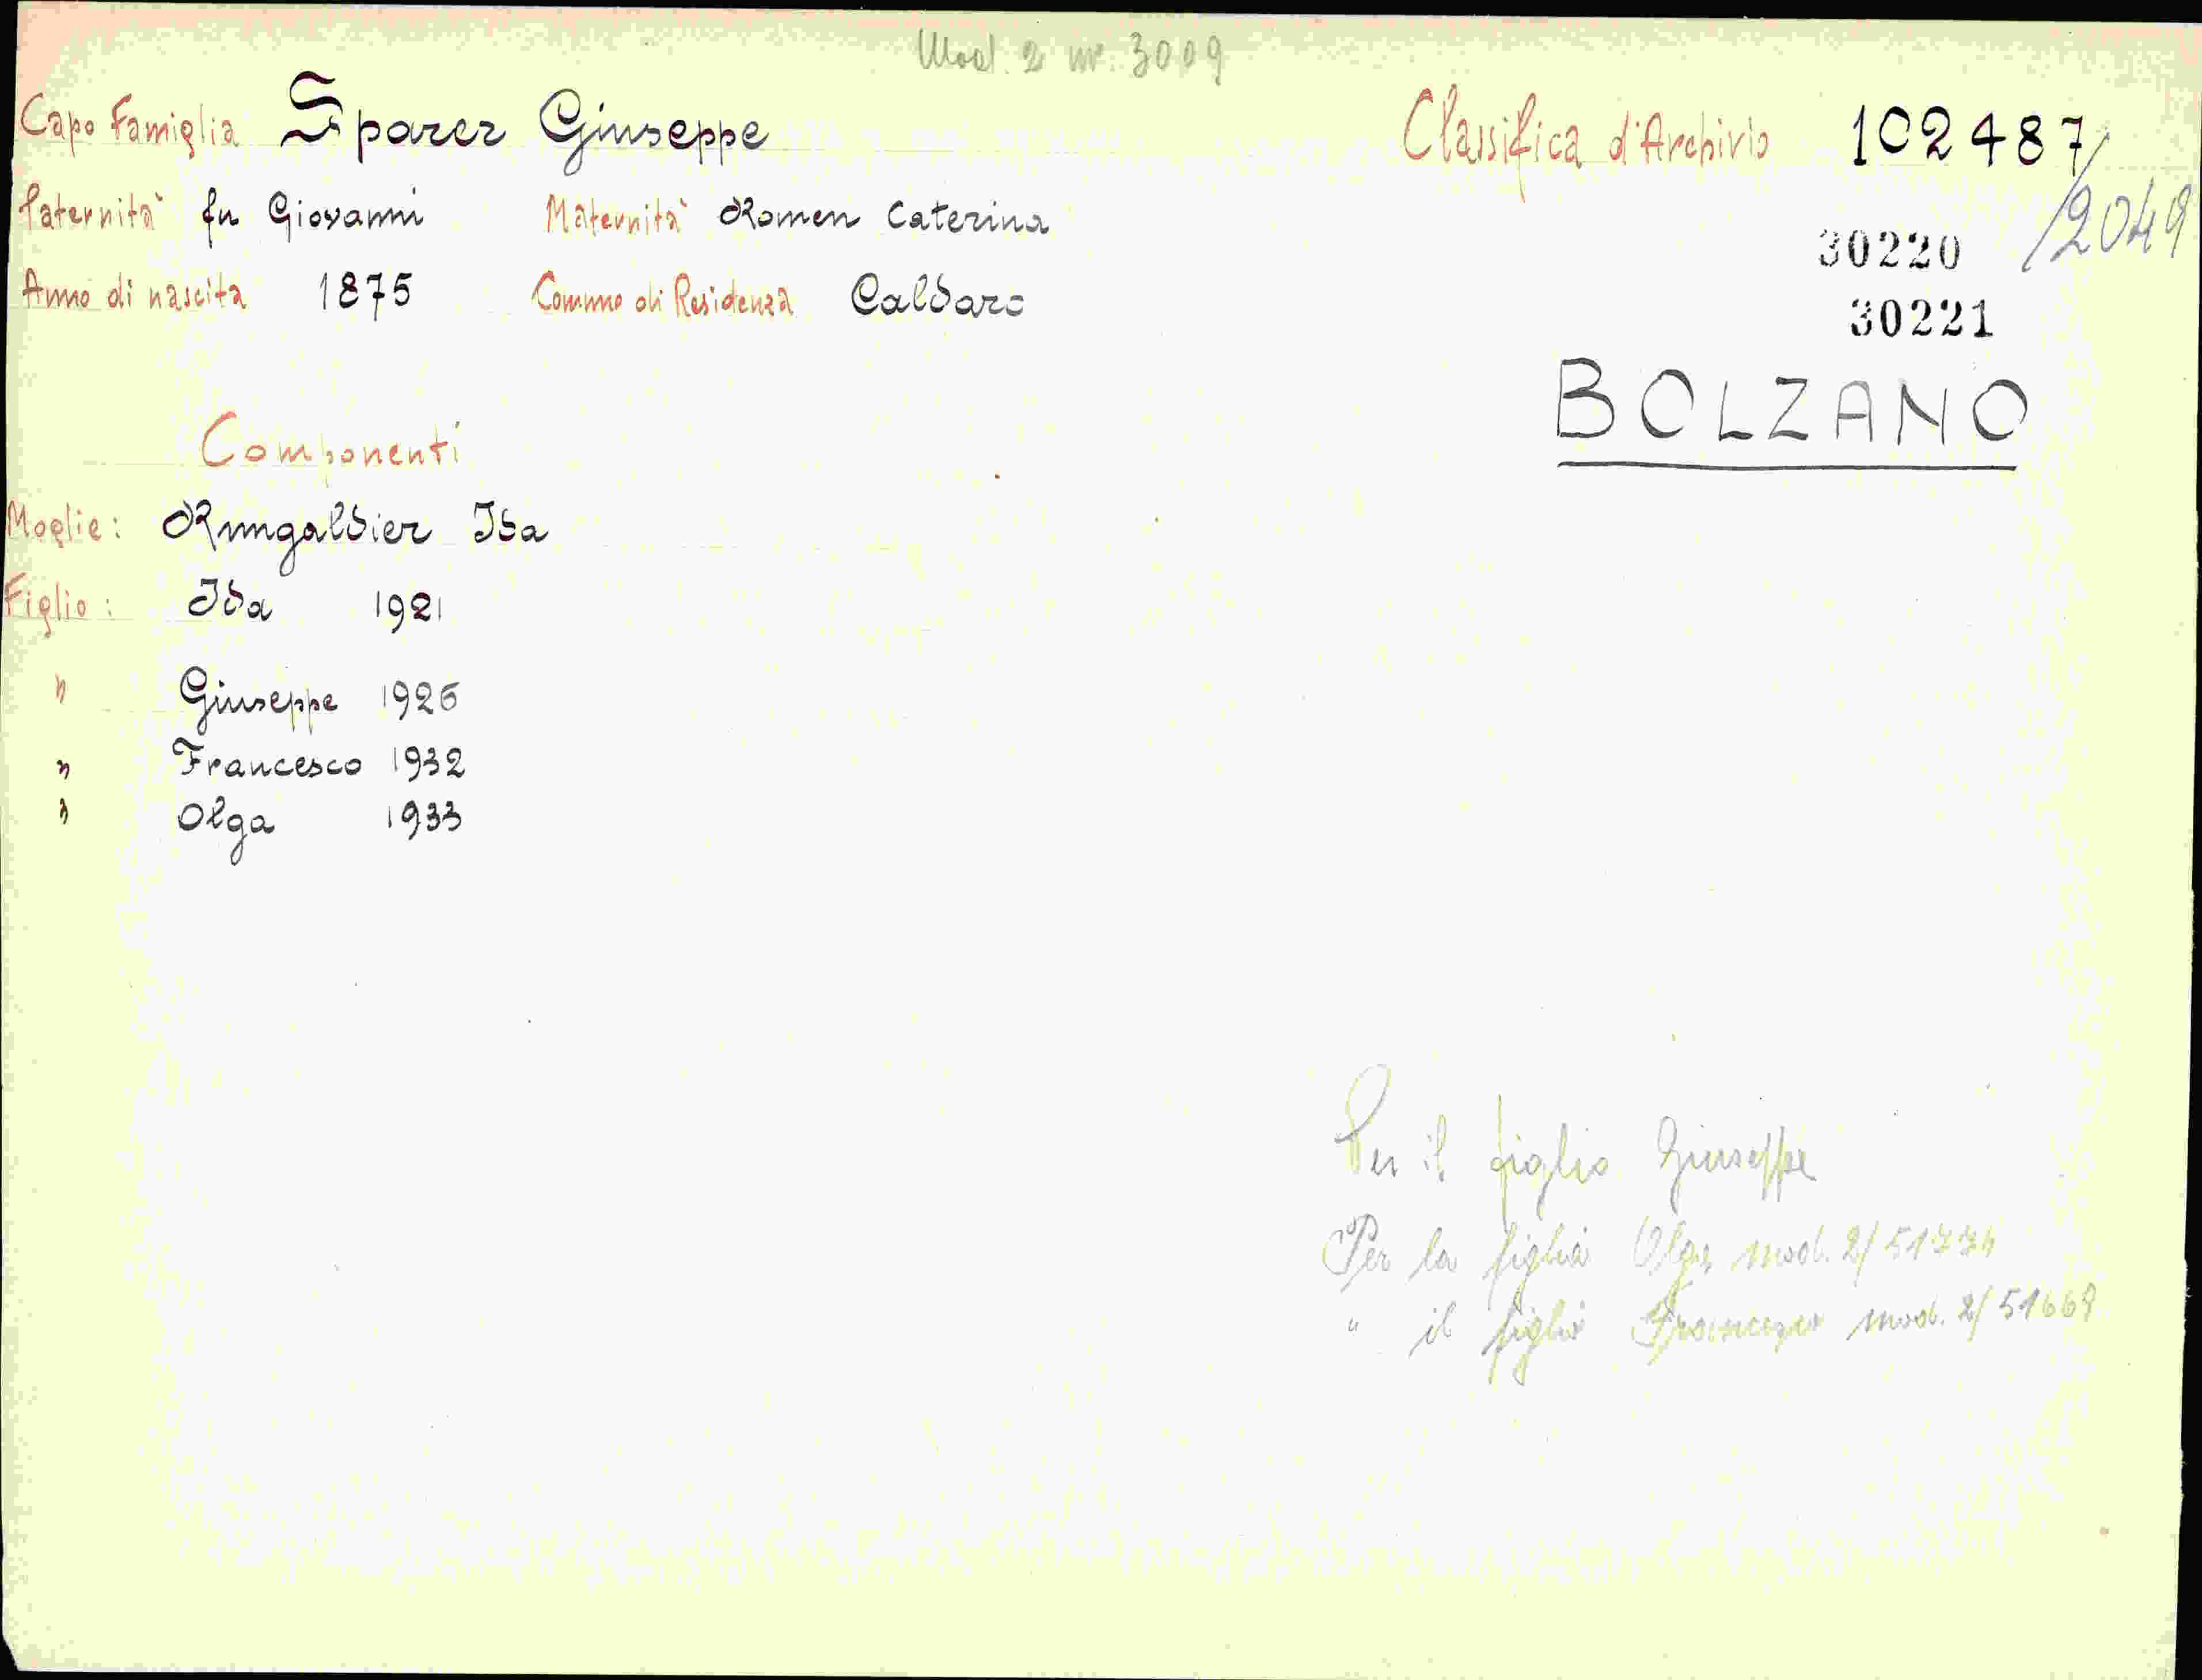 Mod. 2 nr. 3009
Capo Famiglia Sparer Giuseppe
Classifica d'Archivio 102487/2049
Paternità fu Giovanni Maternità Romen Caterina
30220
Anno di nascita 1875 Comune di Residenza Caldaro
30221
BOLZANO
Componenti
Moglie: Rungaldier Ida
Figlio: Ida 1921
" Giuseppe 1926
" Francesco 1932
" Olga 1933
Per il figlio Giuseppe
Per la figlia Olga mod. 2/51774
" il figlio Francesco mod. 2/51669